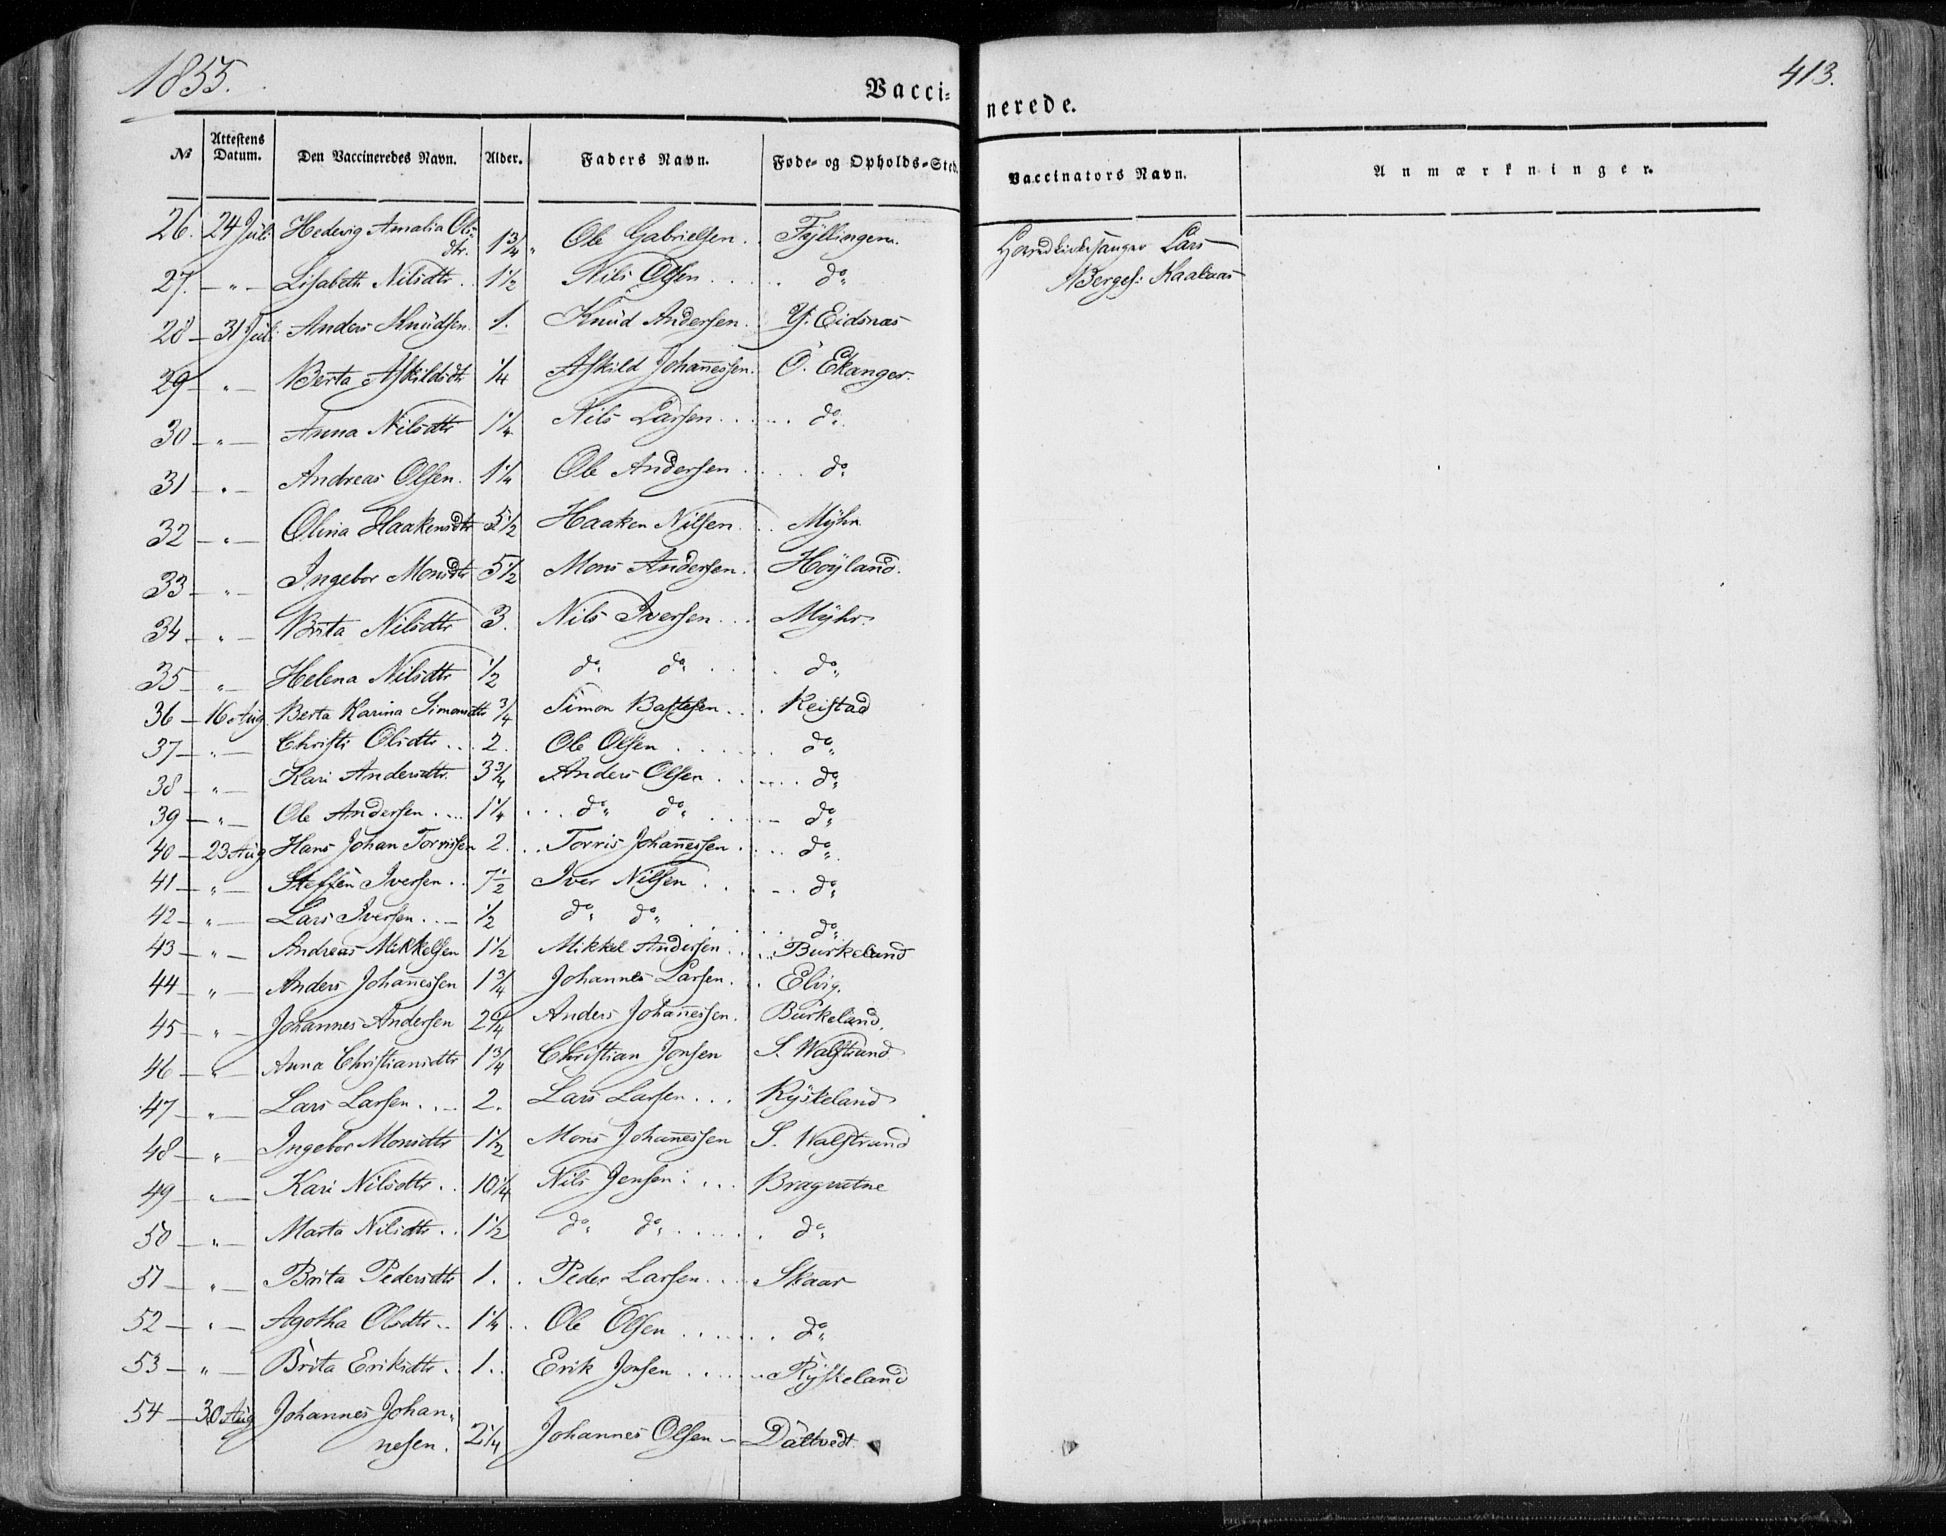 1855.
413.
Vaccinerede.
№ Attestens Datum. Den Vaccineredes Navn. Alder. Faders Navn. Føde- og Opholds-Sted. Vaccinators Navn. Anmærkninger.
26. 24 Juli Hedevig Amalia Ols- 1 3/4 Ole Gabrielsen. Fyllingen. Lars
dtr.
27. " Lisabeth Nilsdtr. 1 1/2 Nils Olsen do
28 31 Juli Anders Knudsen. 1. Knud Andersen. Y. Eidsnæs
29 " Berta Askildsdtr 1/4 Askild Johanessen. Ö. Ekanger.
30 " Anna Nilsdtr 1 1/4 Nils Larsen do
31 " Andreas Olsen. 1 1/4 Ole Andersen do
32 " Olina Haakensdtr 5 1/2 Haaken Nilsen Myhr
33 " Ingebor Monsdtr 5 1/2 Mons Andersen. Høyland.
34 " Brita Nilsdtr 3. Nils Iversen Myhr.
35 " Helena Nilsdtr 1/2 do do do
36 16 Aug. Berta Karina Simonsdtr 3/4 Simon Bastesen Reistad
37 " Christi Olsdtr 2. Ole Olsen do
38 " Kari Andersdtr. 3 3/4 Anders Olsen do
39 " Ole Andersen 1 1/4 do do do
40 23 Aug Hans Johan Torrissen 2. Torris Johanessen do
41 " Steffen Iversen 7 1/2 Iver Nilsen do
42 " Lars Iversen 1/2 do do do
43 " Andreas Mikkelsen 1 1/2 Mikkel Andersen Burkeland
44 " Anders Johanessen 1 3/4 Johannes Larsen Elvig.
45 " Johannes Andersen 2 1/4 Anders Johanessen. Burkeland.
46 " Anna Christiansdtr 1 3/4 Christian Jonsen S. Walstrand
47 " Lars Larsen 2. Lars Larsen Ryskeland
48 " Ingebor Monsdtr 1 1/2 Mons Johanessen S. Walstrand
49 " Kari Nilsdtr 10 1/4 Nils Jensen
50 " Marta Nilsdtr 1 1/2 do do do
51 " Brita Pedersdtr 1. Peder Larsen Skaar
52 " Agotha Olsdtr 1 1/4 Ole Olsen do
53 " Brita Eriksdtr. 1. Erik Jonsen Ryskeland
54 30 Aug Johannes Johan-
nesen. 2 1/4 Johannes Olsen Dåltvedt